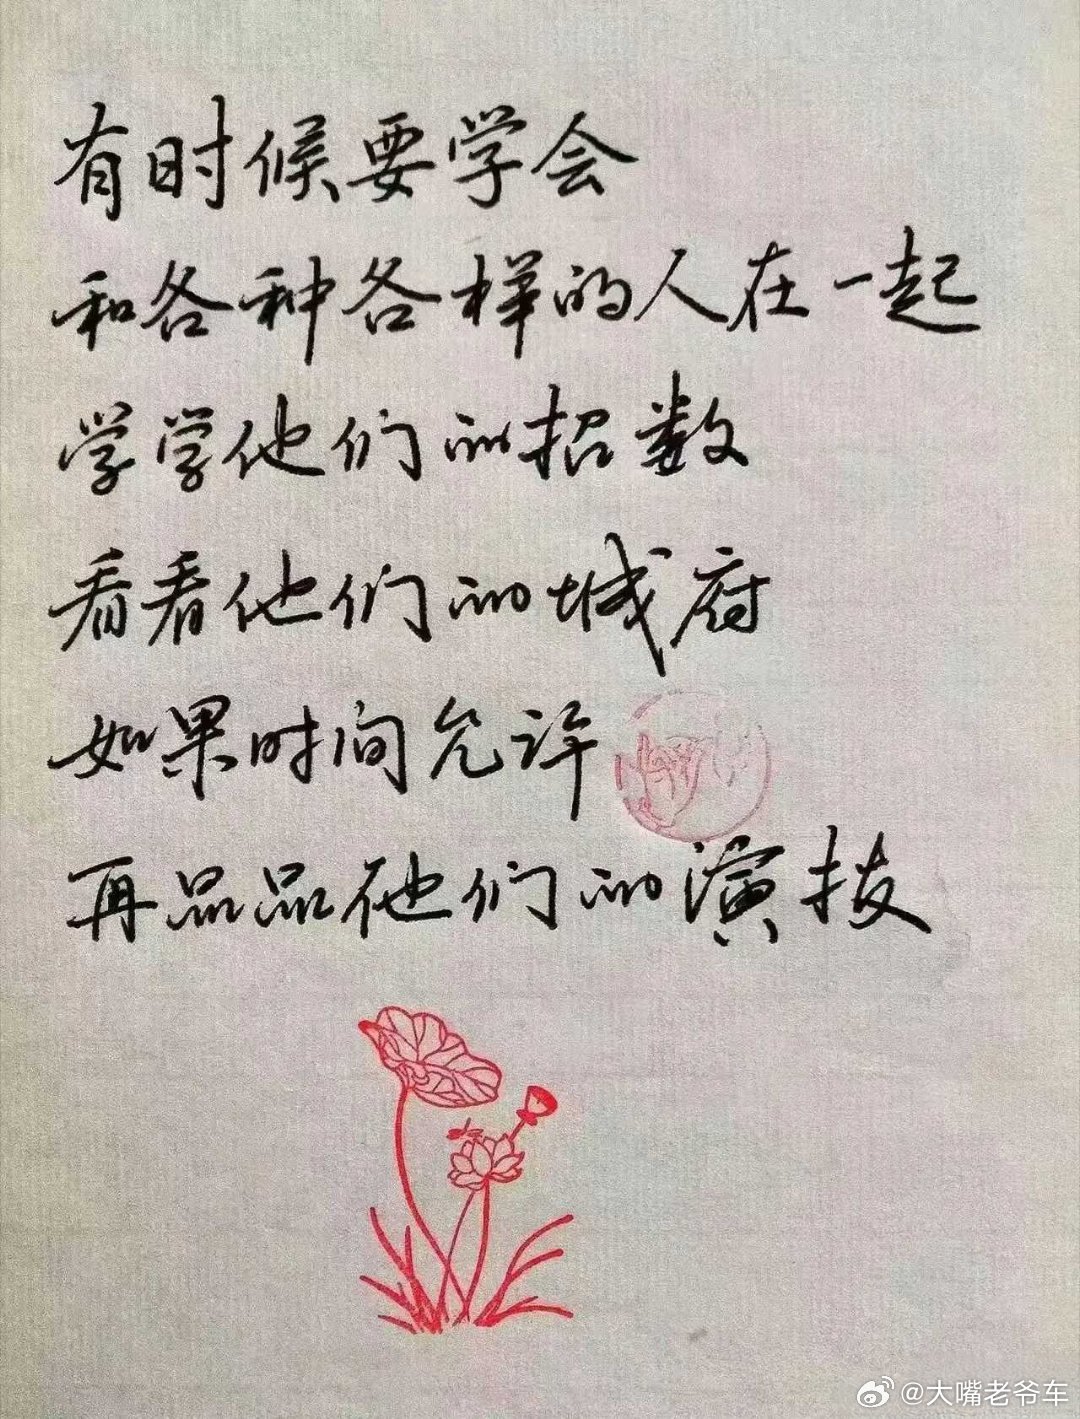 有时候要学会
和各种各样的人在一起
学学他们的招数
看看他们的城府
如果时间允许
再品品他们的演技
@大嘴老爷车